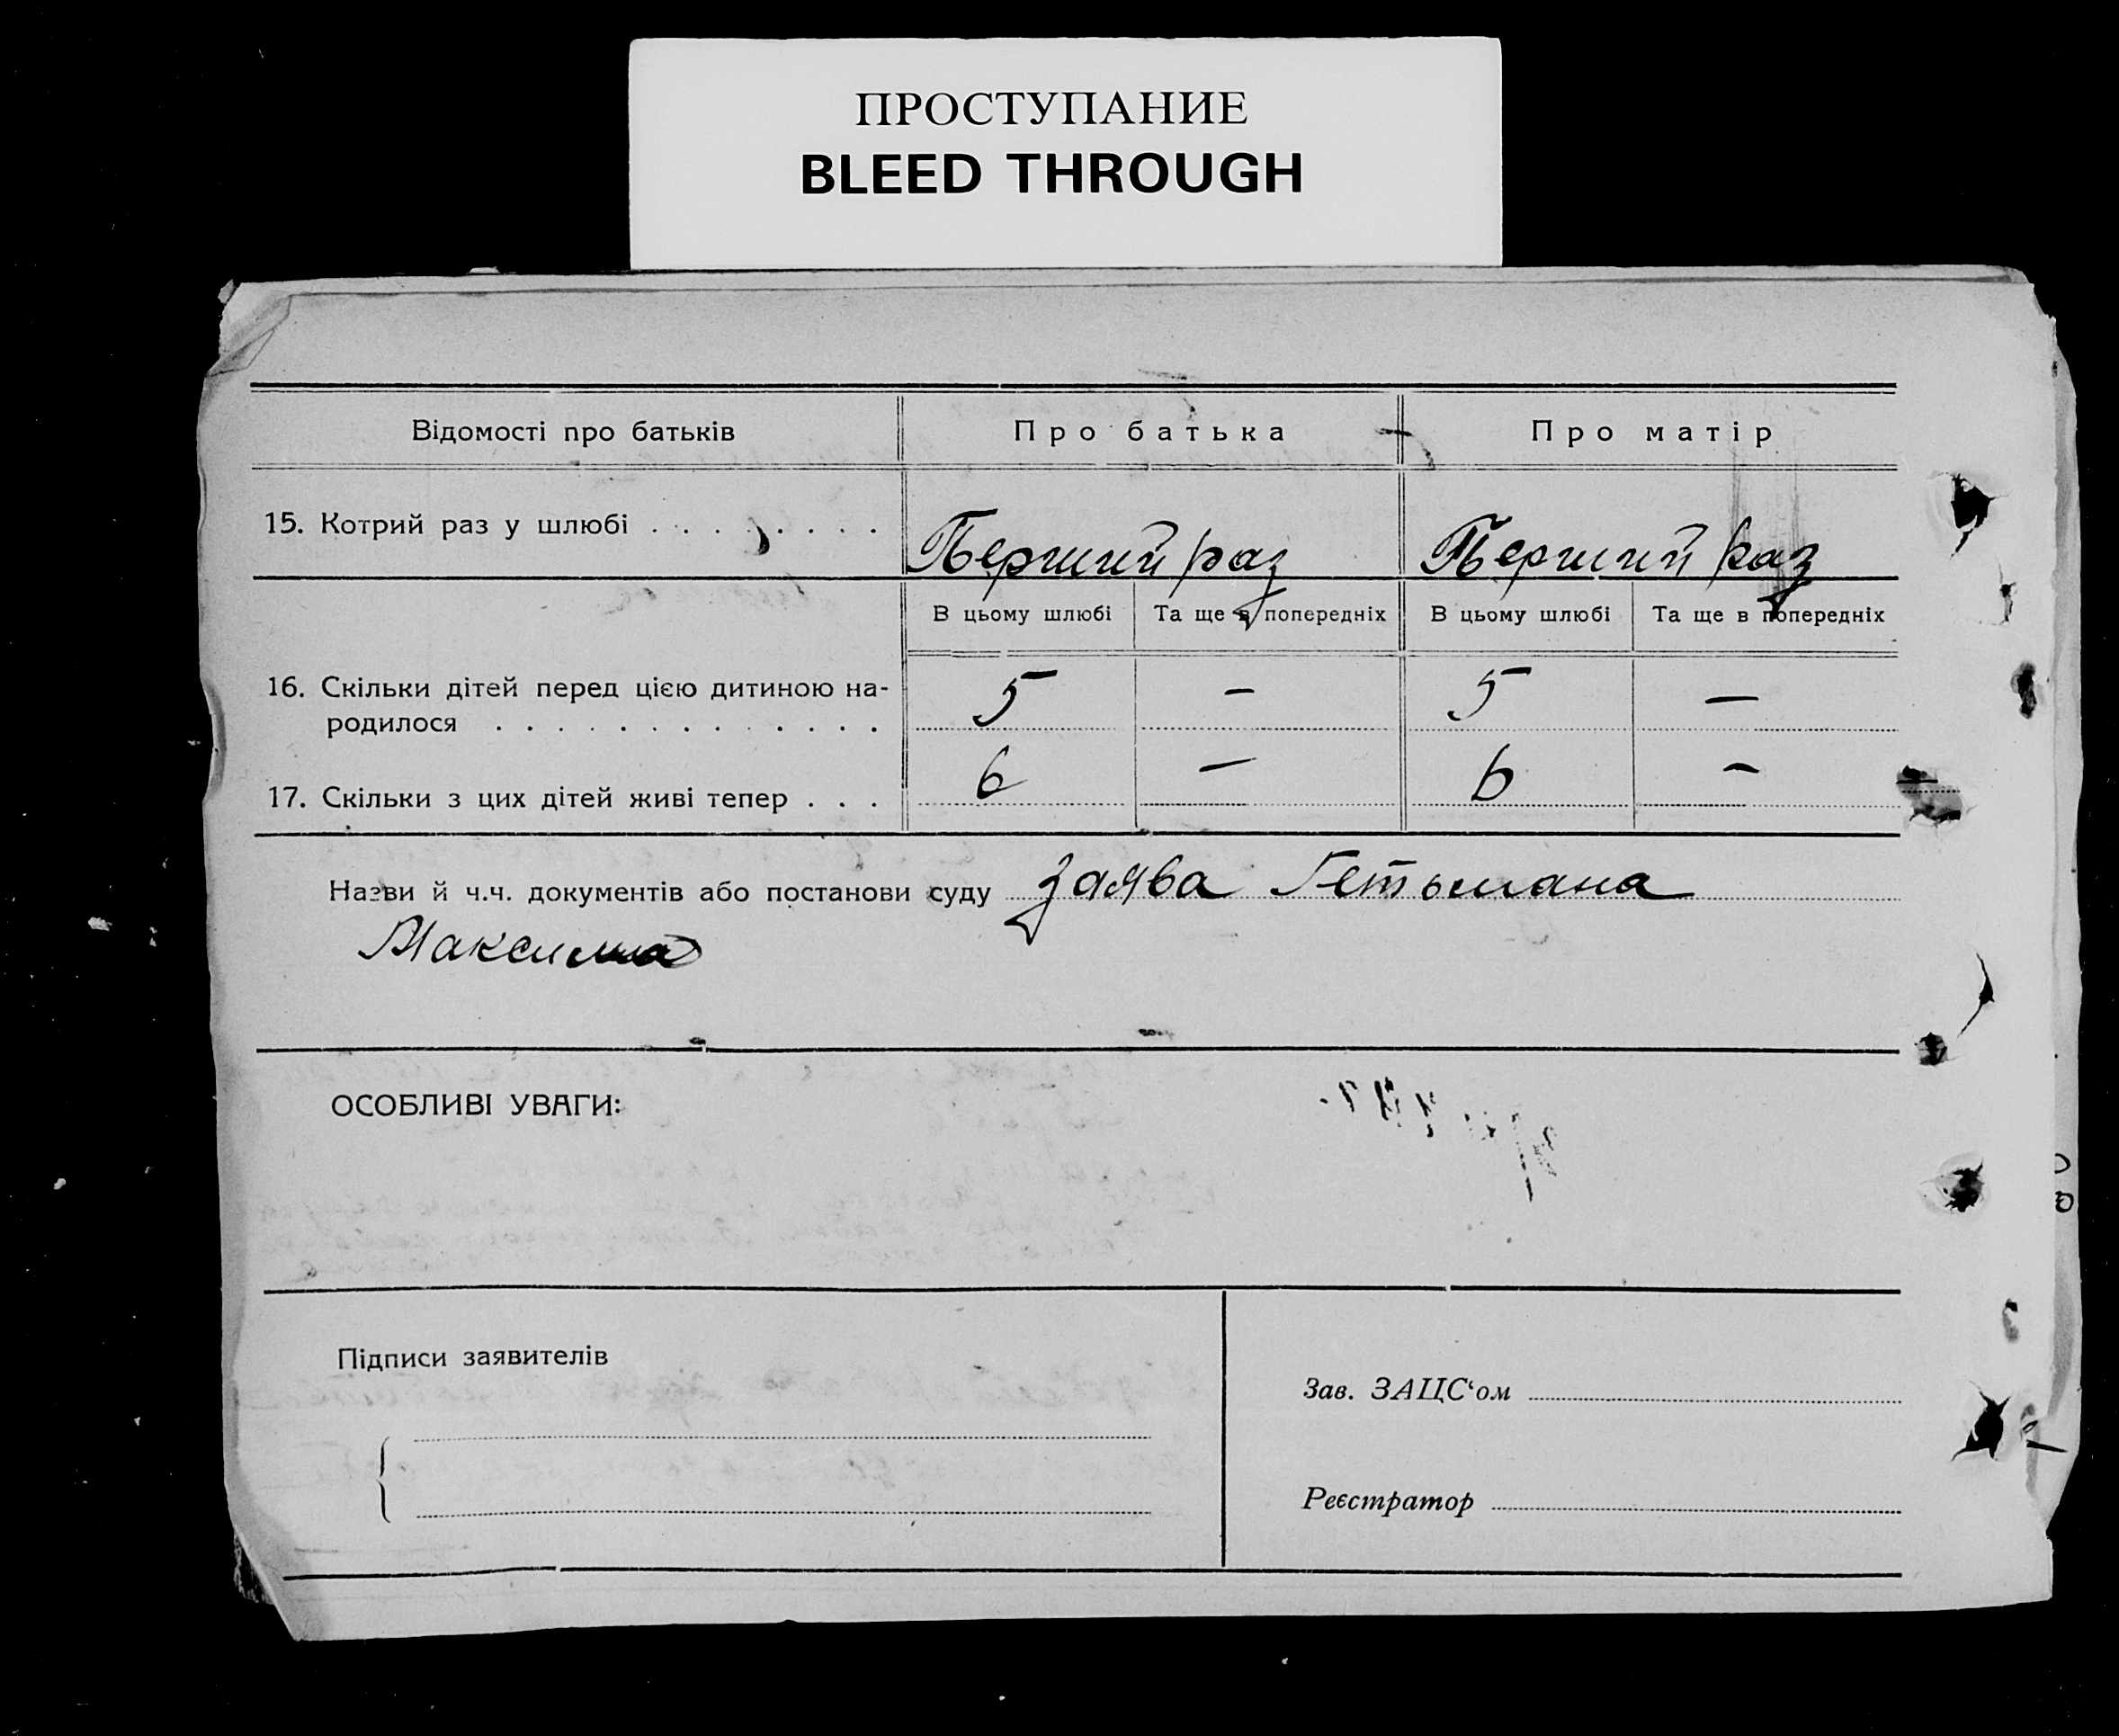 ПРОСТУПАНИЕ
BLEED THROUGH
Відомості про батьків Про батька Про матір
15. Котрий раз у шлюбі . . . . . . . . Перший раз Перший раз
В цьому шлюбі Та ще в попередніх В цьому шлюбі Та ще в попередніх
16. Скільки дітей перед цією дитиною на-
родилося . . . . . . . . . . . . . 5 — 5 —
17. Скільки з цих дітей живі тепер . . . 6 — 6 —
Назви й ч.ч. документів або постанови суду заява Гетьмана
Максима
ОСОБЛИВІ УВАГИ:
Підписи заявителів
Зав. ЗАЦС‘ом
Реєстратор